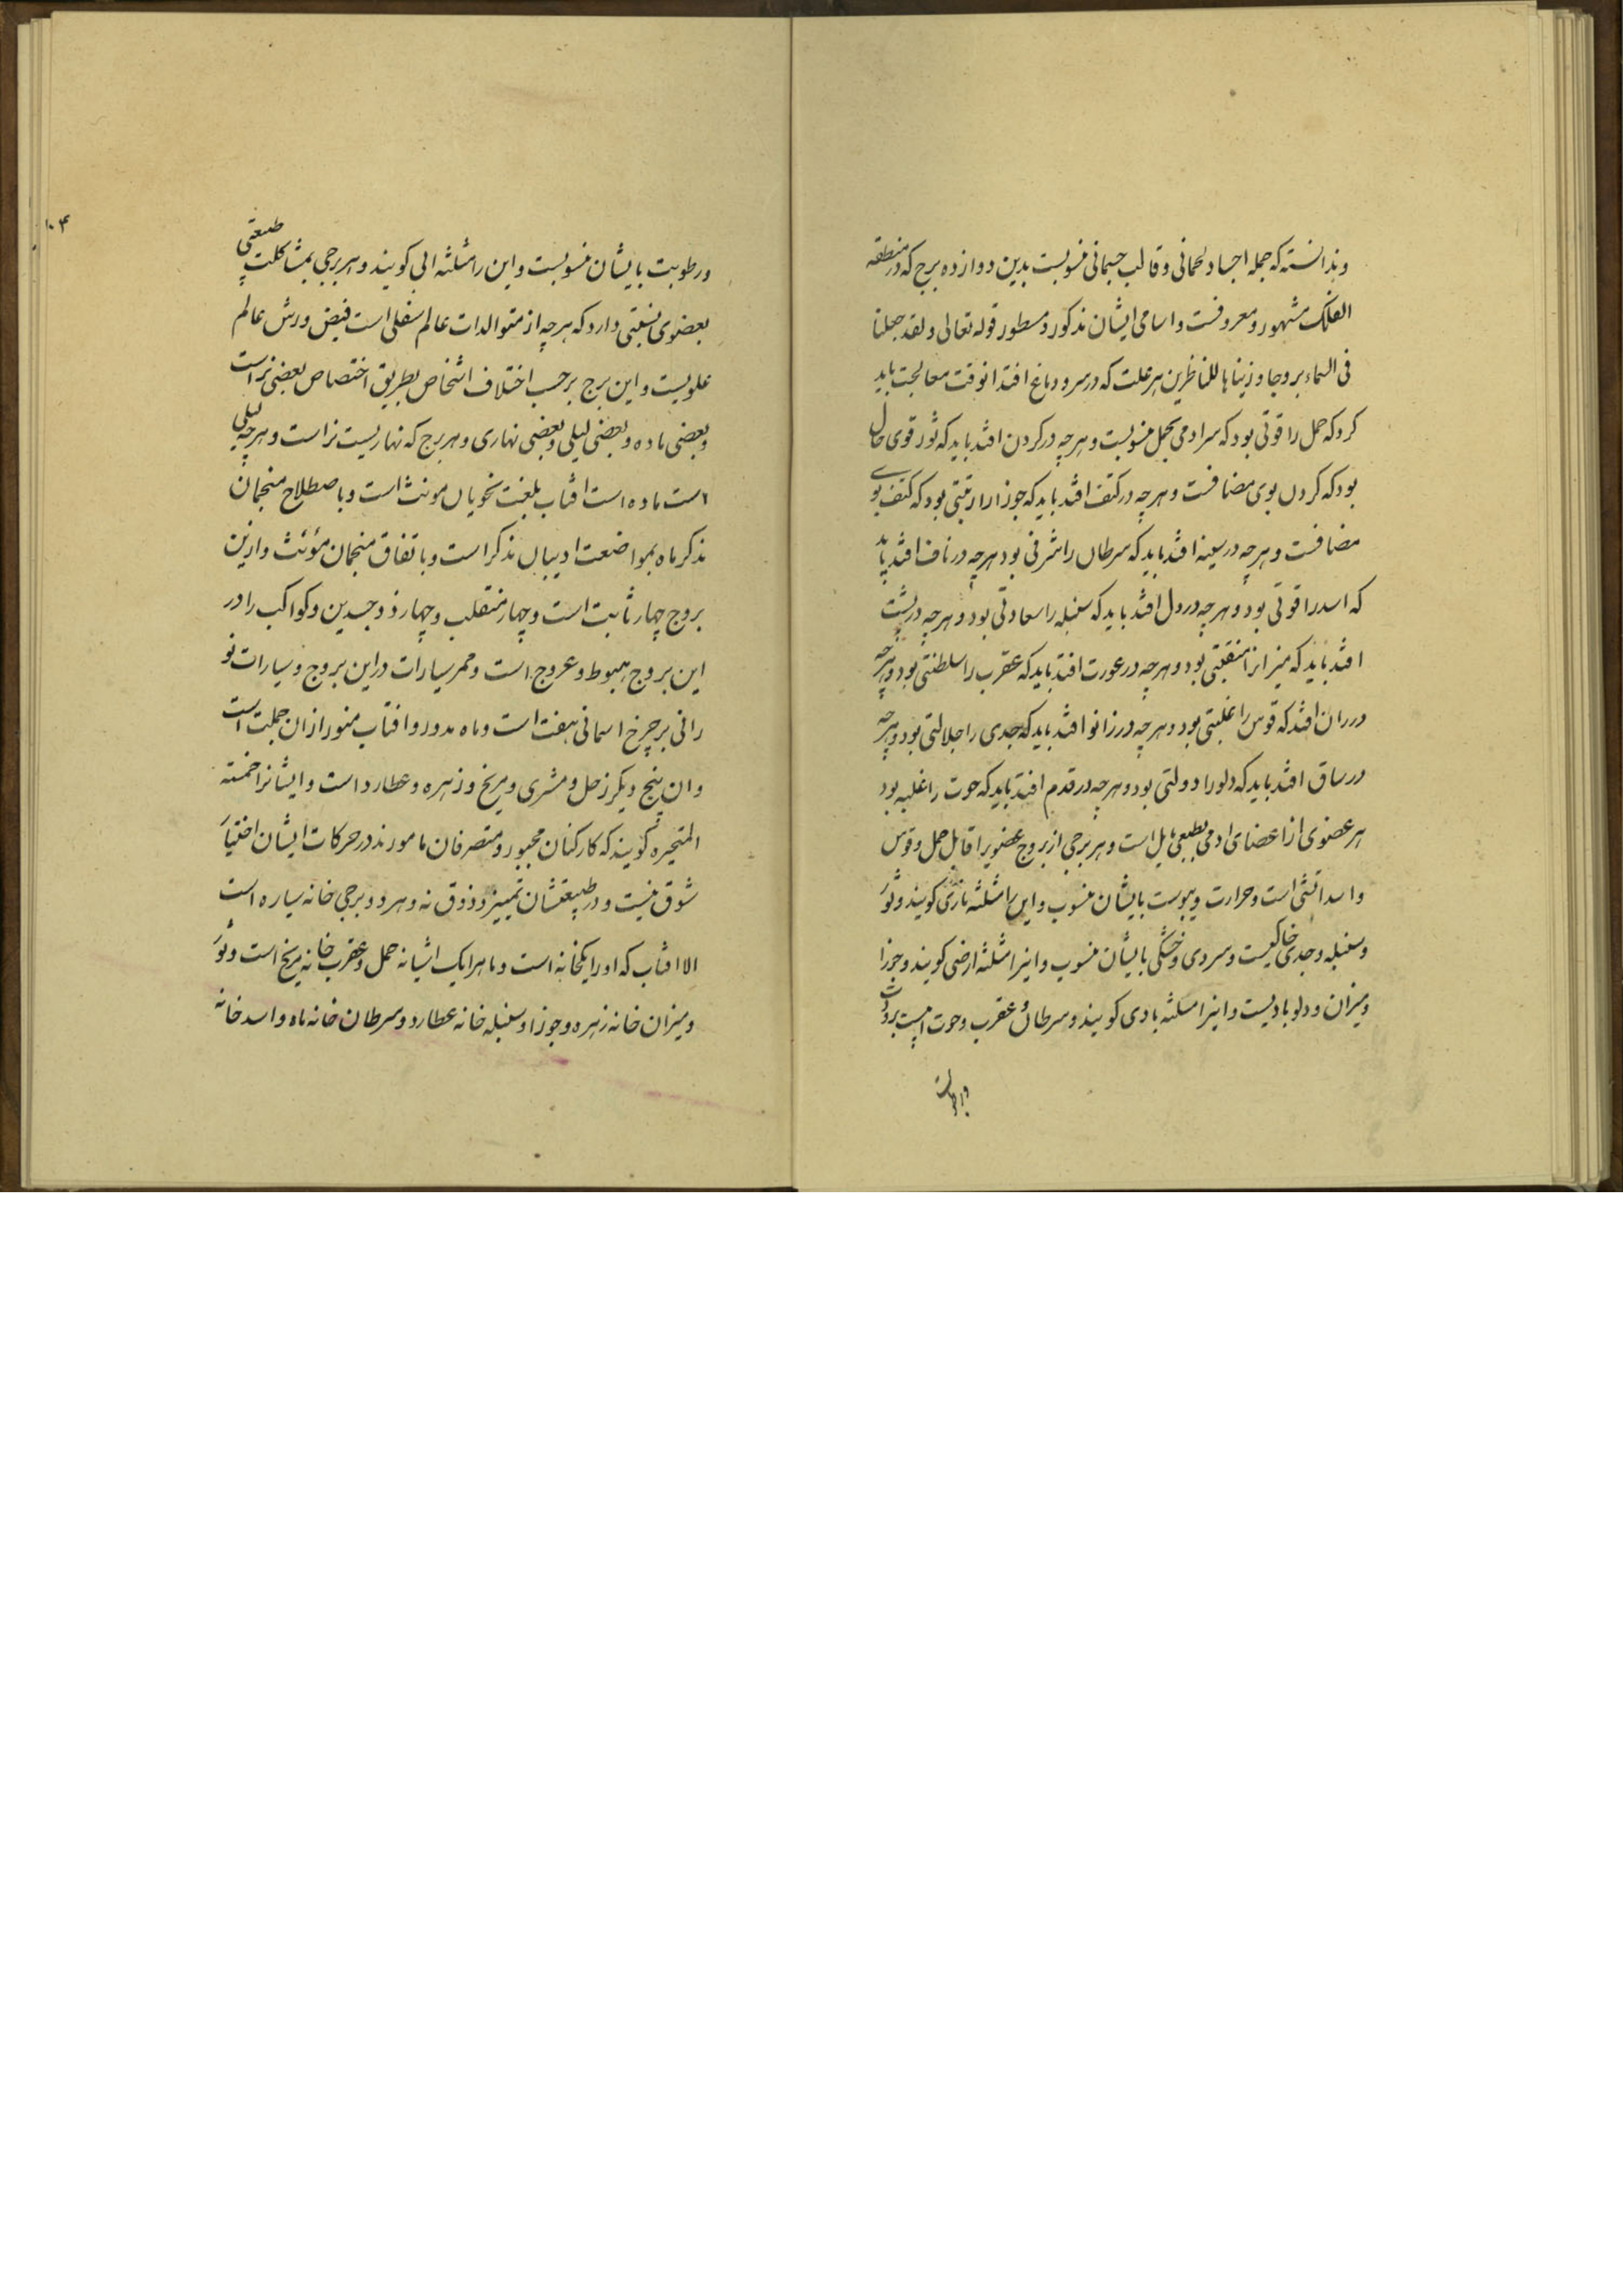 وندانسته که جمله اجساد لحمانی و قالب جسمانی منسوبست بدین دوازده برج که در منطقه
الفلک مشهور و معروفست و اسامی ایشان مذکور و مسطور قوله تعالی ولقد جعلنا
فی السماء بروجا و زیناها للناظرین هر علت که در سر و دماغ افتد انوقت معالجت باید
کرد که حمل را قوتی بود که سر ادمی بحمل منسوبست و هرچه در کردن افتد باید که ثور قوی حال
بود که کردن بوی مضافست و هرچه در کتف افتد باید که جوزا را رتبتی بود که کتف بوی
مضافست و هرچه در سینه افتد باید که سرطان را شرفی بود هرچه در ناف افتد باید
که اسد را قوتی بود و هرچه در دل افتد باید که سنبله را سعادتی بود و هرچه در پشت
افتد باید که میزانرا منقبتی بود و هرچه در عورت افتد باید که عقرب را سلطنتی بود و هرچه
در ران افتد که قوس را غلبتی بود و هرچه در زانو افتد باید که جدی را جلالتی بود و هرچه
در ساق افتد باید که دلو را دولتی بود و هرچه در قدم افتد باید که حوت را غلبه بود
هر عضوی از اعضای ادمی بطبعی مایل است و هر برجی از بروج عضویرا قابل حمل و قوس
و اسد اتشی است و حرارت و یبوست بایشان منسوب و این را مثلثه ناری کویند و ثور
و سنبله و جدی خاکیست و سردی و خشکی بایشان منسوب و اینرا مثلثه ارضی کویند و جوزا
و میزان و دلو بادیست و اینرا مثلثه بادی کویند و سرطان و عقرب و حوت ابیست برودت
ورطوبت
۱۰۴
ورطوبت بایشان منسوبست و این را مثلثه ابی کویند و هر برجی بمشاکلت طبیعتی
بعضوی نسبتی دارد که هرچه از متوالدات عالم سفلی است فیض ورش عالم
علویست و این برج برحسب اختلاف اشخاص بطریق اختصاص بعضی نر است
و بعضی ماده و بعضی لیلی و بعضی نهاری و هر برج که نهاریست نر است و هرچه لیلی
است ماده است افتاب بلغت نحویان مونث است و باصطلاح منجمان
مذکر ماه بمواضعت ادیبان مذکر است و باتفاق منجمان مؤنث و ازین
بروج چهار ثابت است و چهار منقلب و چهار ذو جسدین و کواکب را در
این بروج هبوط و عروج است و ممر سیارات در این بروج و سیارات نو
رانی بر چرخ اسمانی هفت است و ماه مدور و افتاب منور از ان جملت است
و ان پنج دیکر زحل و مشتری و مریخ و زهره و عطارد است و ایشانرا خمسه
المتحیره کویند که کارکنان مجبور و متصرفان مامورند در حرکات ایشان اختیار
شوق نیست و در طبیعتشان تمییز و ذوق نه و هر دو برجی خانه سیاره است
الا افتاب که او را یکخانه است و ماهرا یک اشیانه حمل و عقرب خانه مریخ است و ثور
و میزان خانه زهره و جوزا و سنبله خانه عطارد و سرطان خانه ماه و اسد خانه